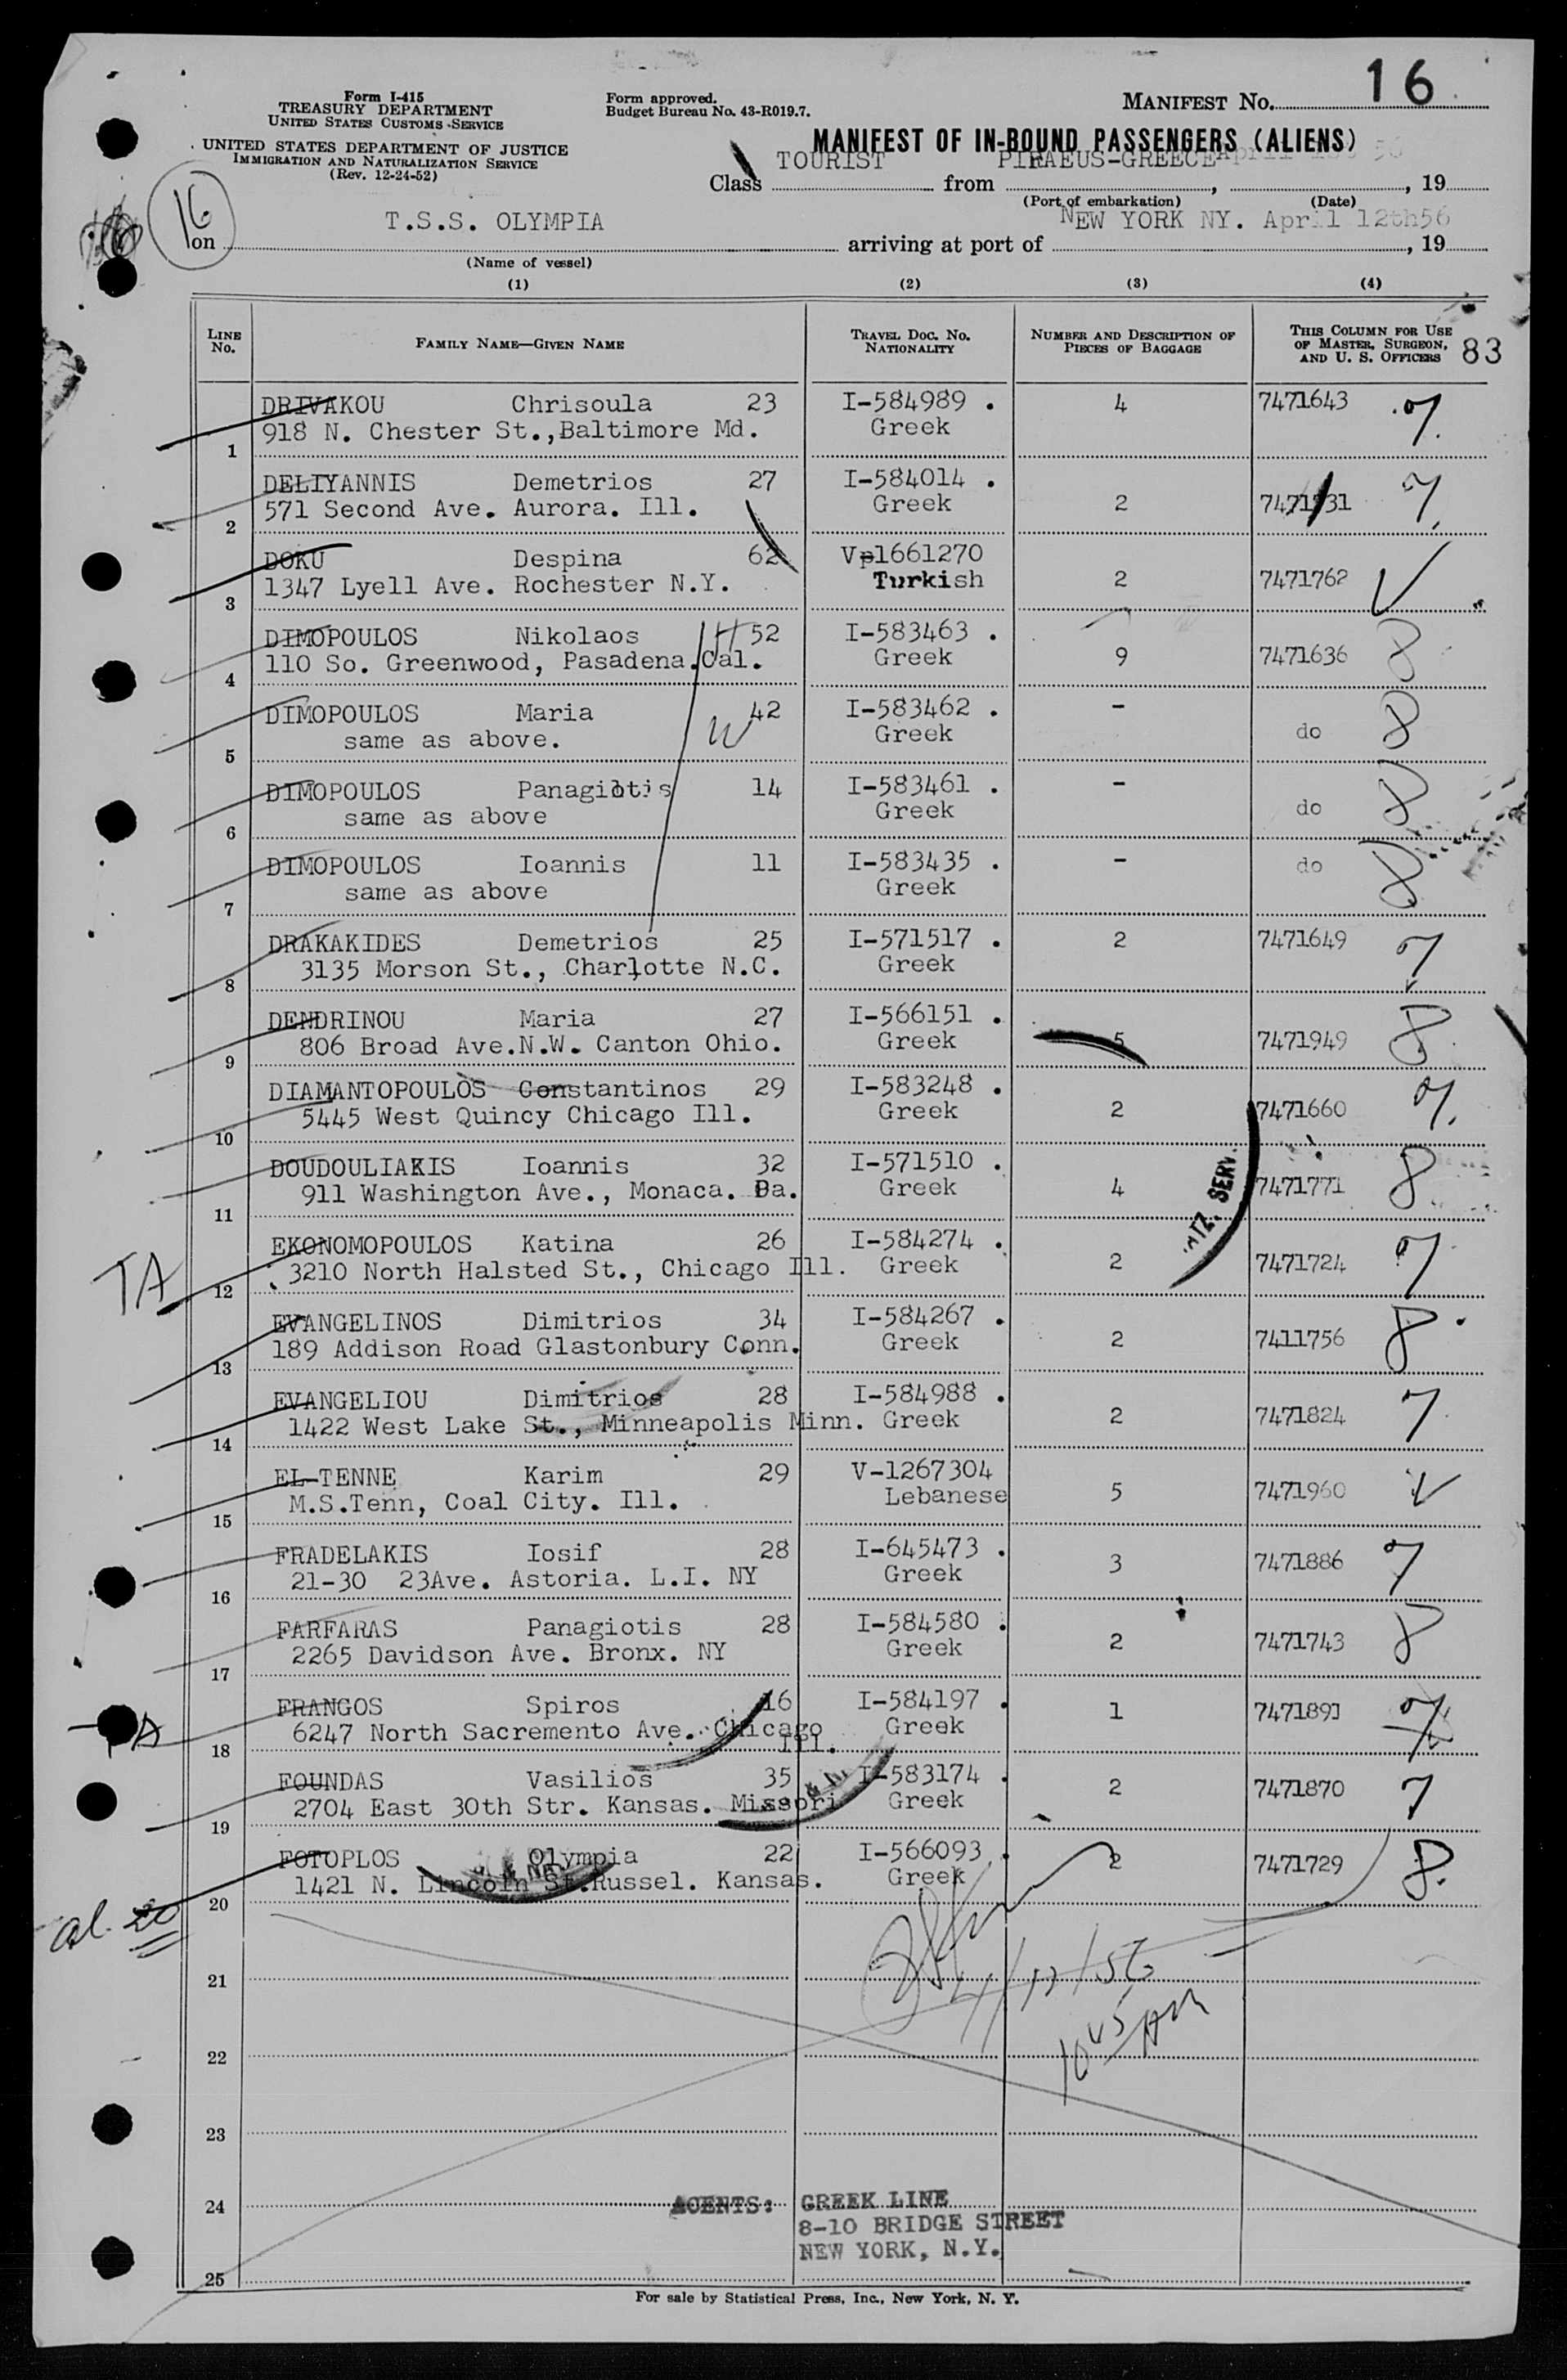 Form I-415
TREASURY DEPARTMENT
UNITED STATES CUSTOMS SERVICE
UNITED STATES DEPARTMENT OF JUSTICE
IMMIGRATION AND NATURALIZATION SERVICE
(Rev. 12-24-52)
Form approved.
Budget Bureau No. 43-R019.7.
MANIFEST No. 16
MANIFEST OF IN-BOUND PASSENGERS (ALIENS)
Class TOURIST from PIRAEUS-GREECE, April 56, 19
(Port of embarkation) (Date)
16
on T.S.S. OLYMPIA arriving at port of NEW YORK NY. April 12th56, 19
(Name of vessel)
(1) (2) (3) (4)
LINE No. FAMILY NAME—GIVEN NAME TRAVEL DOC. NO. NATIONALITY NUMBER AND DESCRIPTION OF PIECES OF BAGGAGE THIS COLUMN FOR USE OF MASTER, SURGEON, AND U. S. OFFICERS 83
DRIVAKOU Chrisoula 23 I-584989 . 4 7471643 7.
1 918 N. Chester St.,Baltimore Md. Greek
DELIYANNIS Demetrios 27 I-584014 .
2 571 Second Ave. Aurora. Ill. Greek 2 7
DOKU Despina 62 Vp1661270
3 1347 Lyell Ave. Rochester N.Y. Turkish 2 7471762 V
DIMOPOULOS Nikolaos H 52 I-583463 .
4 110 So. Greenwood, Pasadena.Cal. Greek 9 7471636 8
DIMOPOULOS Maria W 42 I-583462 . -
5 same as above. Greek do 8
DIMOPOULOS Panagiotis 14 I-583461 . -
6 same as above Greek do 8
DIMOPOULOS Ioannis 11 I-583435 . - do 8
7 same as above Greek
DRAKAKIDES Demetrios 25 I-571517 . 2 7471649 7
8 3135 Morson St., Charlotte N.C. Greek
DENDRINOU Maria 27 I-566151 .
9 806 Broad Ave.N.W. Canton Ohio. Greek 5 7471949 8
DIAMANTOPOULOS Constantinos 29 I-583248 .
10 5445 West Quincy Chicago Ill. Greek 2 7471660 7.
DOUDOULIAKIS Ioannis 32 I-571510 .
11 911 Washington Ave., Monaca. Pa. Greek 4 7471771 8
EKONOMOPOULOS Katina 26 I-584274 .
TA 12 3210 North Halsted St., Chicago Ill. Greek 2 7471724 7
EVANGELINOS Dimitrios 34 I-584267 .
13 189 Addison Road Glastonbury Conn. Greek 2 7411756 8
EVANGELIOU Dimitrios 28 I-584988 .
14 1422 West Lake St., Minneapolis Minn. Greek 2 7471824 7
EL-TENNE Karim 29 V-1267304
15 M.S.Tenn, Coal City. Ill. Lebanese 5 7471960 V
FRADELAKIS Iosif 28 I-645473 .
16 21-30 23Ave. Astoria. L.I. NY Greek 3 7471886 7
FARFARAS Panagiotis 28 I-584580 .
17 2265 Davidson Ave. Bronx. NY Greek 2 7471743 8
FRANGOS Spiros 16 I-584197 . 1 7471891 7
TA 18 6247 North Sacremento Ave. Chicago Ill. Greek
FOUNDAS Vasilios 35 I-583174 . 2 7471870 7
19 2704 East 30th Str. Kansas. Missori Greek
FOTOPLOS Olympia 22 I-566093 . 2 7471729 8.
20 1421 N. Lincoln St.Russel. Kansas. Greek
NTZ. SERV.
al. 20
21
4/12/56
22
10 45 AM
23
24
AGENTS: GREEK LINE
8-10 BRIDGE STREET
NEW YORK, N.Y.
25
For sale by Statistical Press, Inc., New York, N. Y.